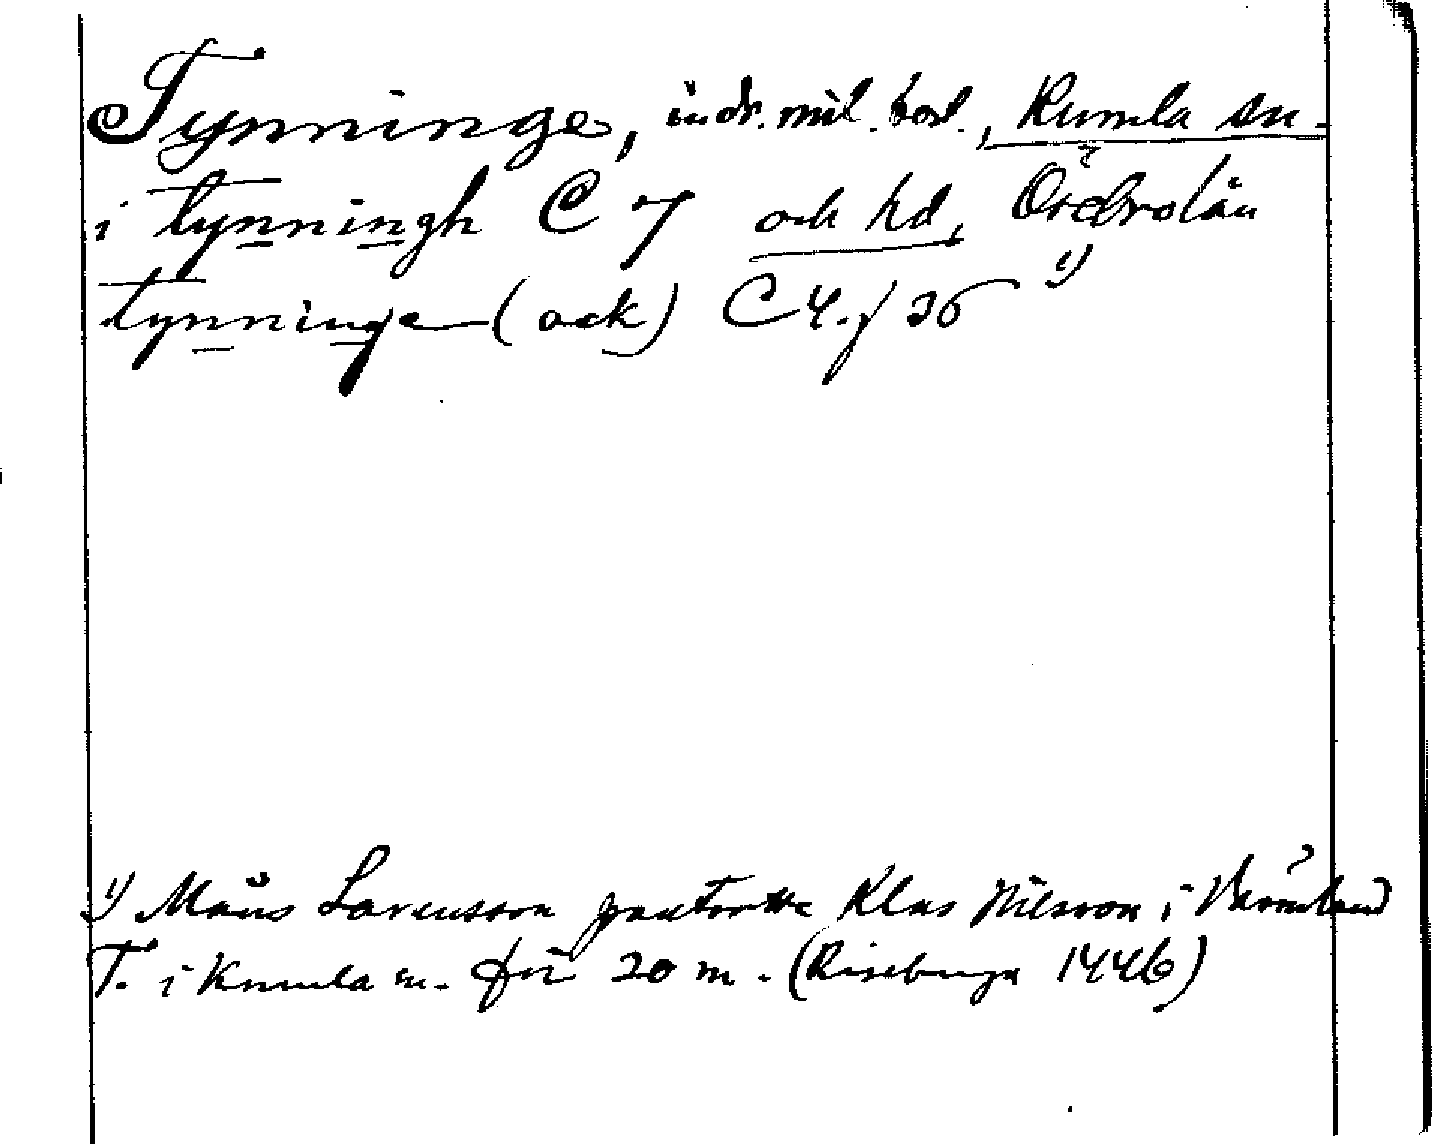 Tynninge, indr. mil. bost., Kumla sn.
i tynningh C 7 och hd, Örebro län
tynninge (ack) C 4. f 36 1)
1) Måns Larensson pantsatte Klas Nilsson i Värmland
T. i Kumla sn. för 20 m. (Riseberga 1446)